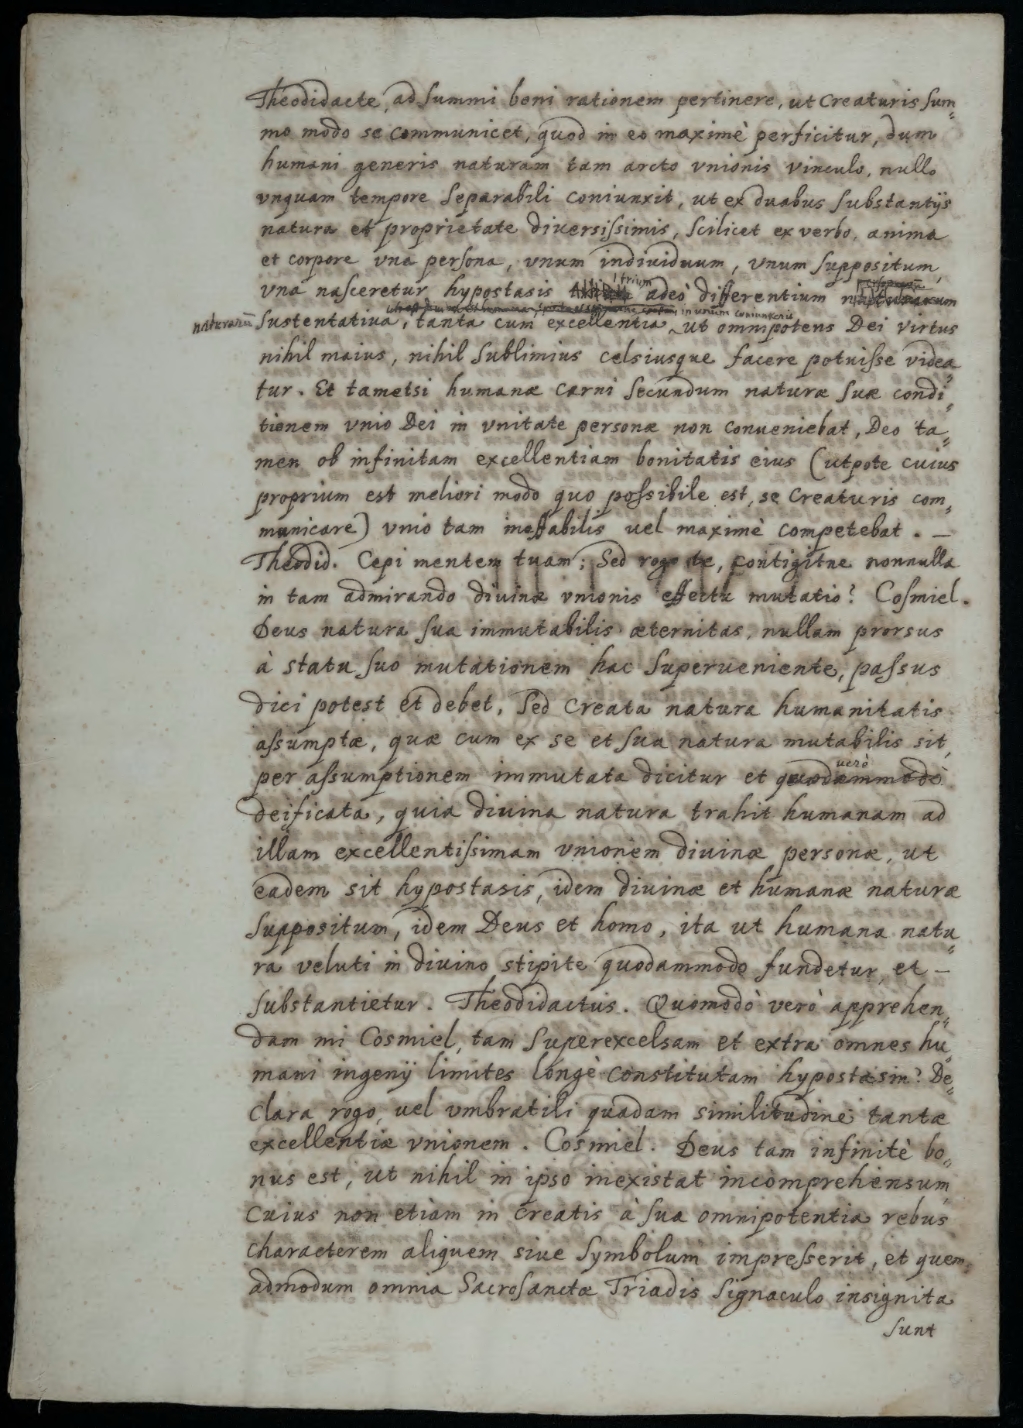 Theodidacte, ad summi boni rationem pertinere, ut Creaturis sum-
mo modo se communicet, quod in eo maximè perficitur, dum
humani generis naturam tam arcto vnionis vinculo, nullo
vnquam tempore separabili coniunxit, ut ex duabus substantijs
natura et proprietate diversissimis, scilicet ex verbo, anima
et corpore vna persona, vnum individuum, vnum suppositum,
vna nasceretur hypostasis trium adeò differentium naturarum
in unum
naturarū sustentatiua, tanta cum excellentia, ut omnipotens Dei virtus
nihil maius, nihil sublimius celsiusque facere potuisse videa-
tur. Et tametsi humanæ carni secundum naturæ suæ condi-
tionem vnio Dei in vnitate personæ non conueniebat, Deo ta-
men ob infinitam excellentiam bonitatis eius (utpote cuius
proprium est meliori modo quo possibile est, se Creaturis com-
municare) vnio tam ineffabilis vel maximè competebat. —
Theodid. Cepi mentem tuam; Sed rogo te, contigitne nonnulla
in tam admirando divinæ vnionis effectu mutatio? Cosmiel.
Deus natura sua immutabilis æternitas, nullam prorsus
à statu suo mutationem hac superueniente, passus
dici potest et debet, sed creata natura humanitatis
assumptæ, quæ cum ex se et sua natura mutabilis sit,
uerò
per assumptionem immutata dicitur et quodammodò
deificata, quia divina natura trahit humanam ad
illam excellentissimam vnionem diuinæ personæ, ut
eadem sit hypostasis, idem diuinæ et humanæ naturæ
suppositum, idem Deus et homo, ita ut humana natu-
ra veluti in divino stipite quodammodo fundetur, et —
substantietur. Theodidactus. Quomodò verò apprehen-
dam mi Cosmiel, tam superexcelsam et extra omnes hu-
mani ingenij limites longè constitutam hypostasin? De-
clara rogo, vel vmbratili quadam similitudine tantæ
excellentiæ vnionem. Cosmiel. Deus tam infinitè bo-
nus est, ut nihil in ipso inexistat incomprehensum,
cuius non etiam in creatis à sua omnipotentia rebus
characterem aliquem siue symbolum impresserit, et quem-
admodum omnia Sacrosanctæ Triadis signaculo insignita
sunt